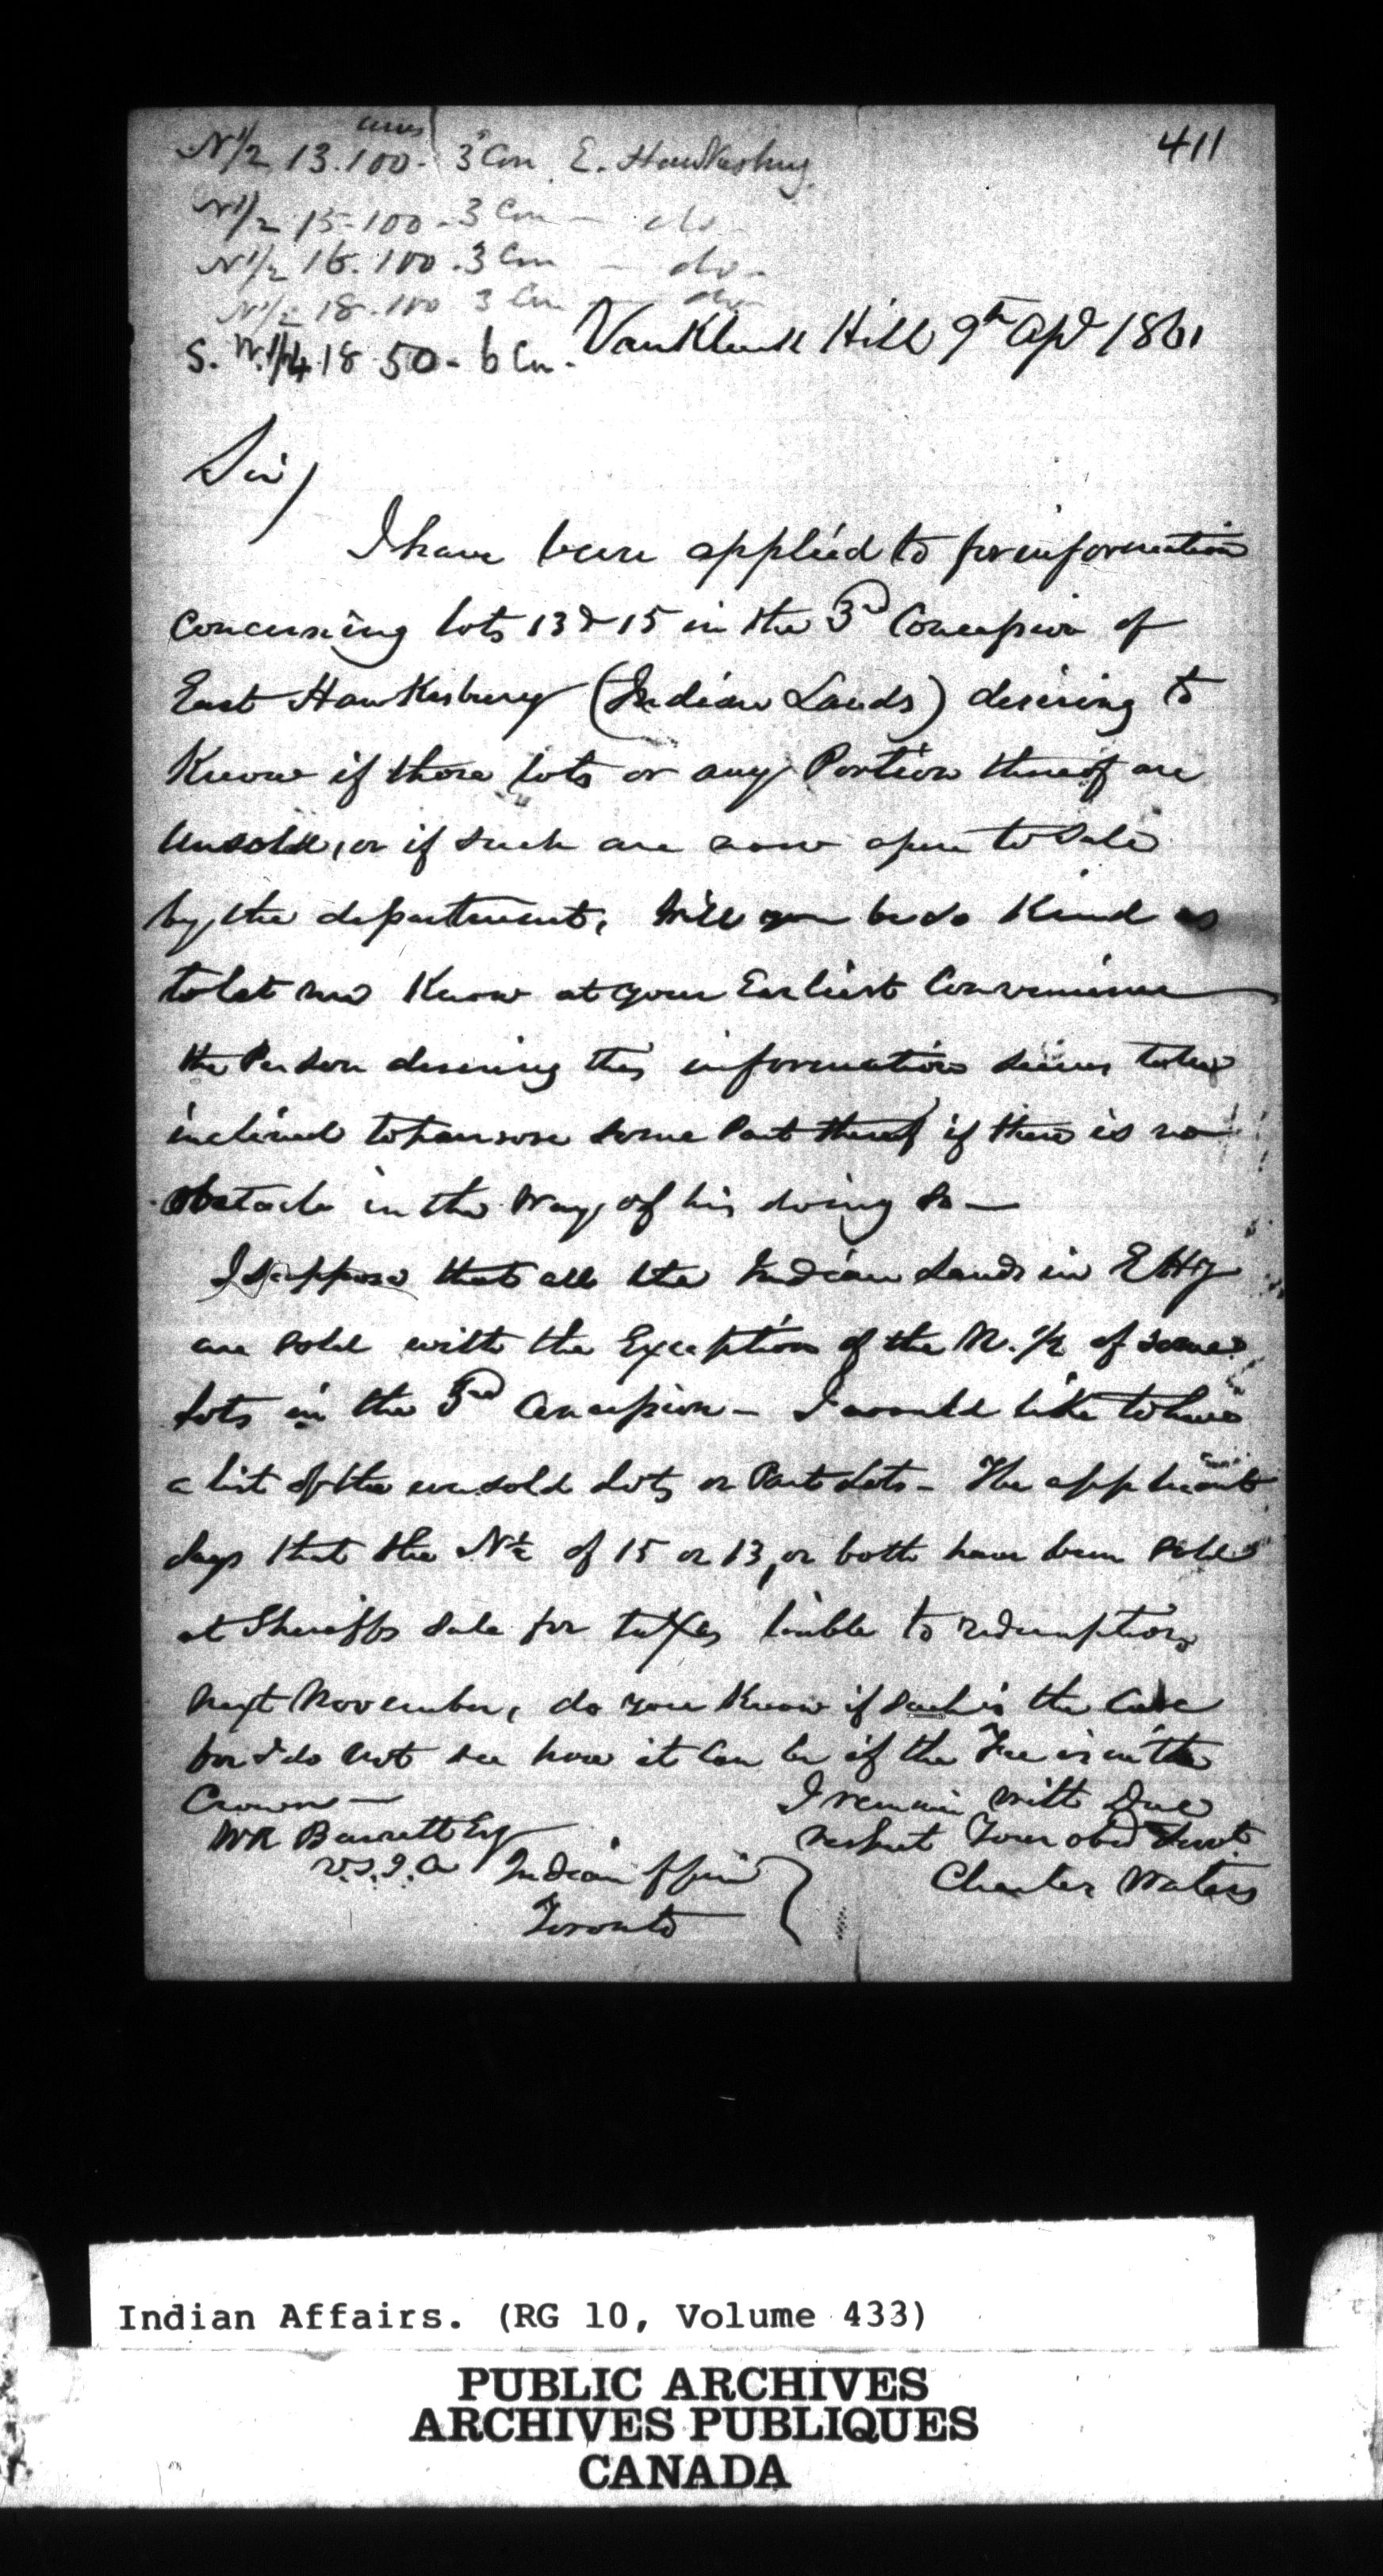 411
acres
N 1/2 13. 100 - 3 Con E. Hawkesbury
N 1/2 15 - 100 - 3 Con - do -
N 1/2 16. 100 - 3 Con - do -
N 1/2 18 - 100 3 Con - do -
S. W. 1/4 18 50 - 6 Con -
VanKleek Hill 9th Apl 1861
Sir,
I have been applied to for information
concerning lots 13 & 15 in the 3rd Concession of
East Hawkesbury (Indian Lands) desiring to
Know if those lots or any Portion thereof are
Unsold, or if such are now open to Sale
by the department, Will you be so Kind as
to let me Know at your Earliest Convenience
the Person desiring this information seems to be
inclined to some Part thereof if there is no
obstacle in the Way of his doing so —
I suppose that all the Indian Lands in E Hy
are sold with the Exception of the N. 1/2 of some
lots in the 3rd Concession — I would like to have
a list of the unsold Lots or Part Lots — The applicant
says that the N 1/2 of 15 or 13, or both have been sold
at Sheriffs sale for taxes liable to redemption
next November, do you Know if such is the Case
for I do not see how it Can be if the Fee is in the
Crown —
I remain With Due
respect Your obed Servt
Charles Waters
W R Bartlett Esq
V.S.I.A Indian Office
Toronto
Indian Affairs. (RG 10, Volume 433)
PUBLIC ARCHIVES
ARCHIVES PUBLIQUES
CANADA